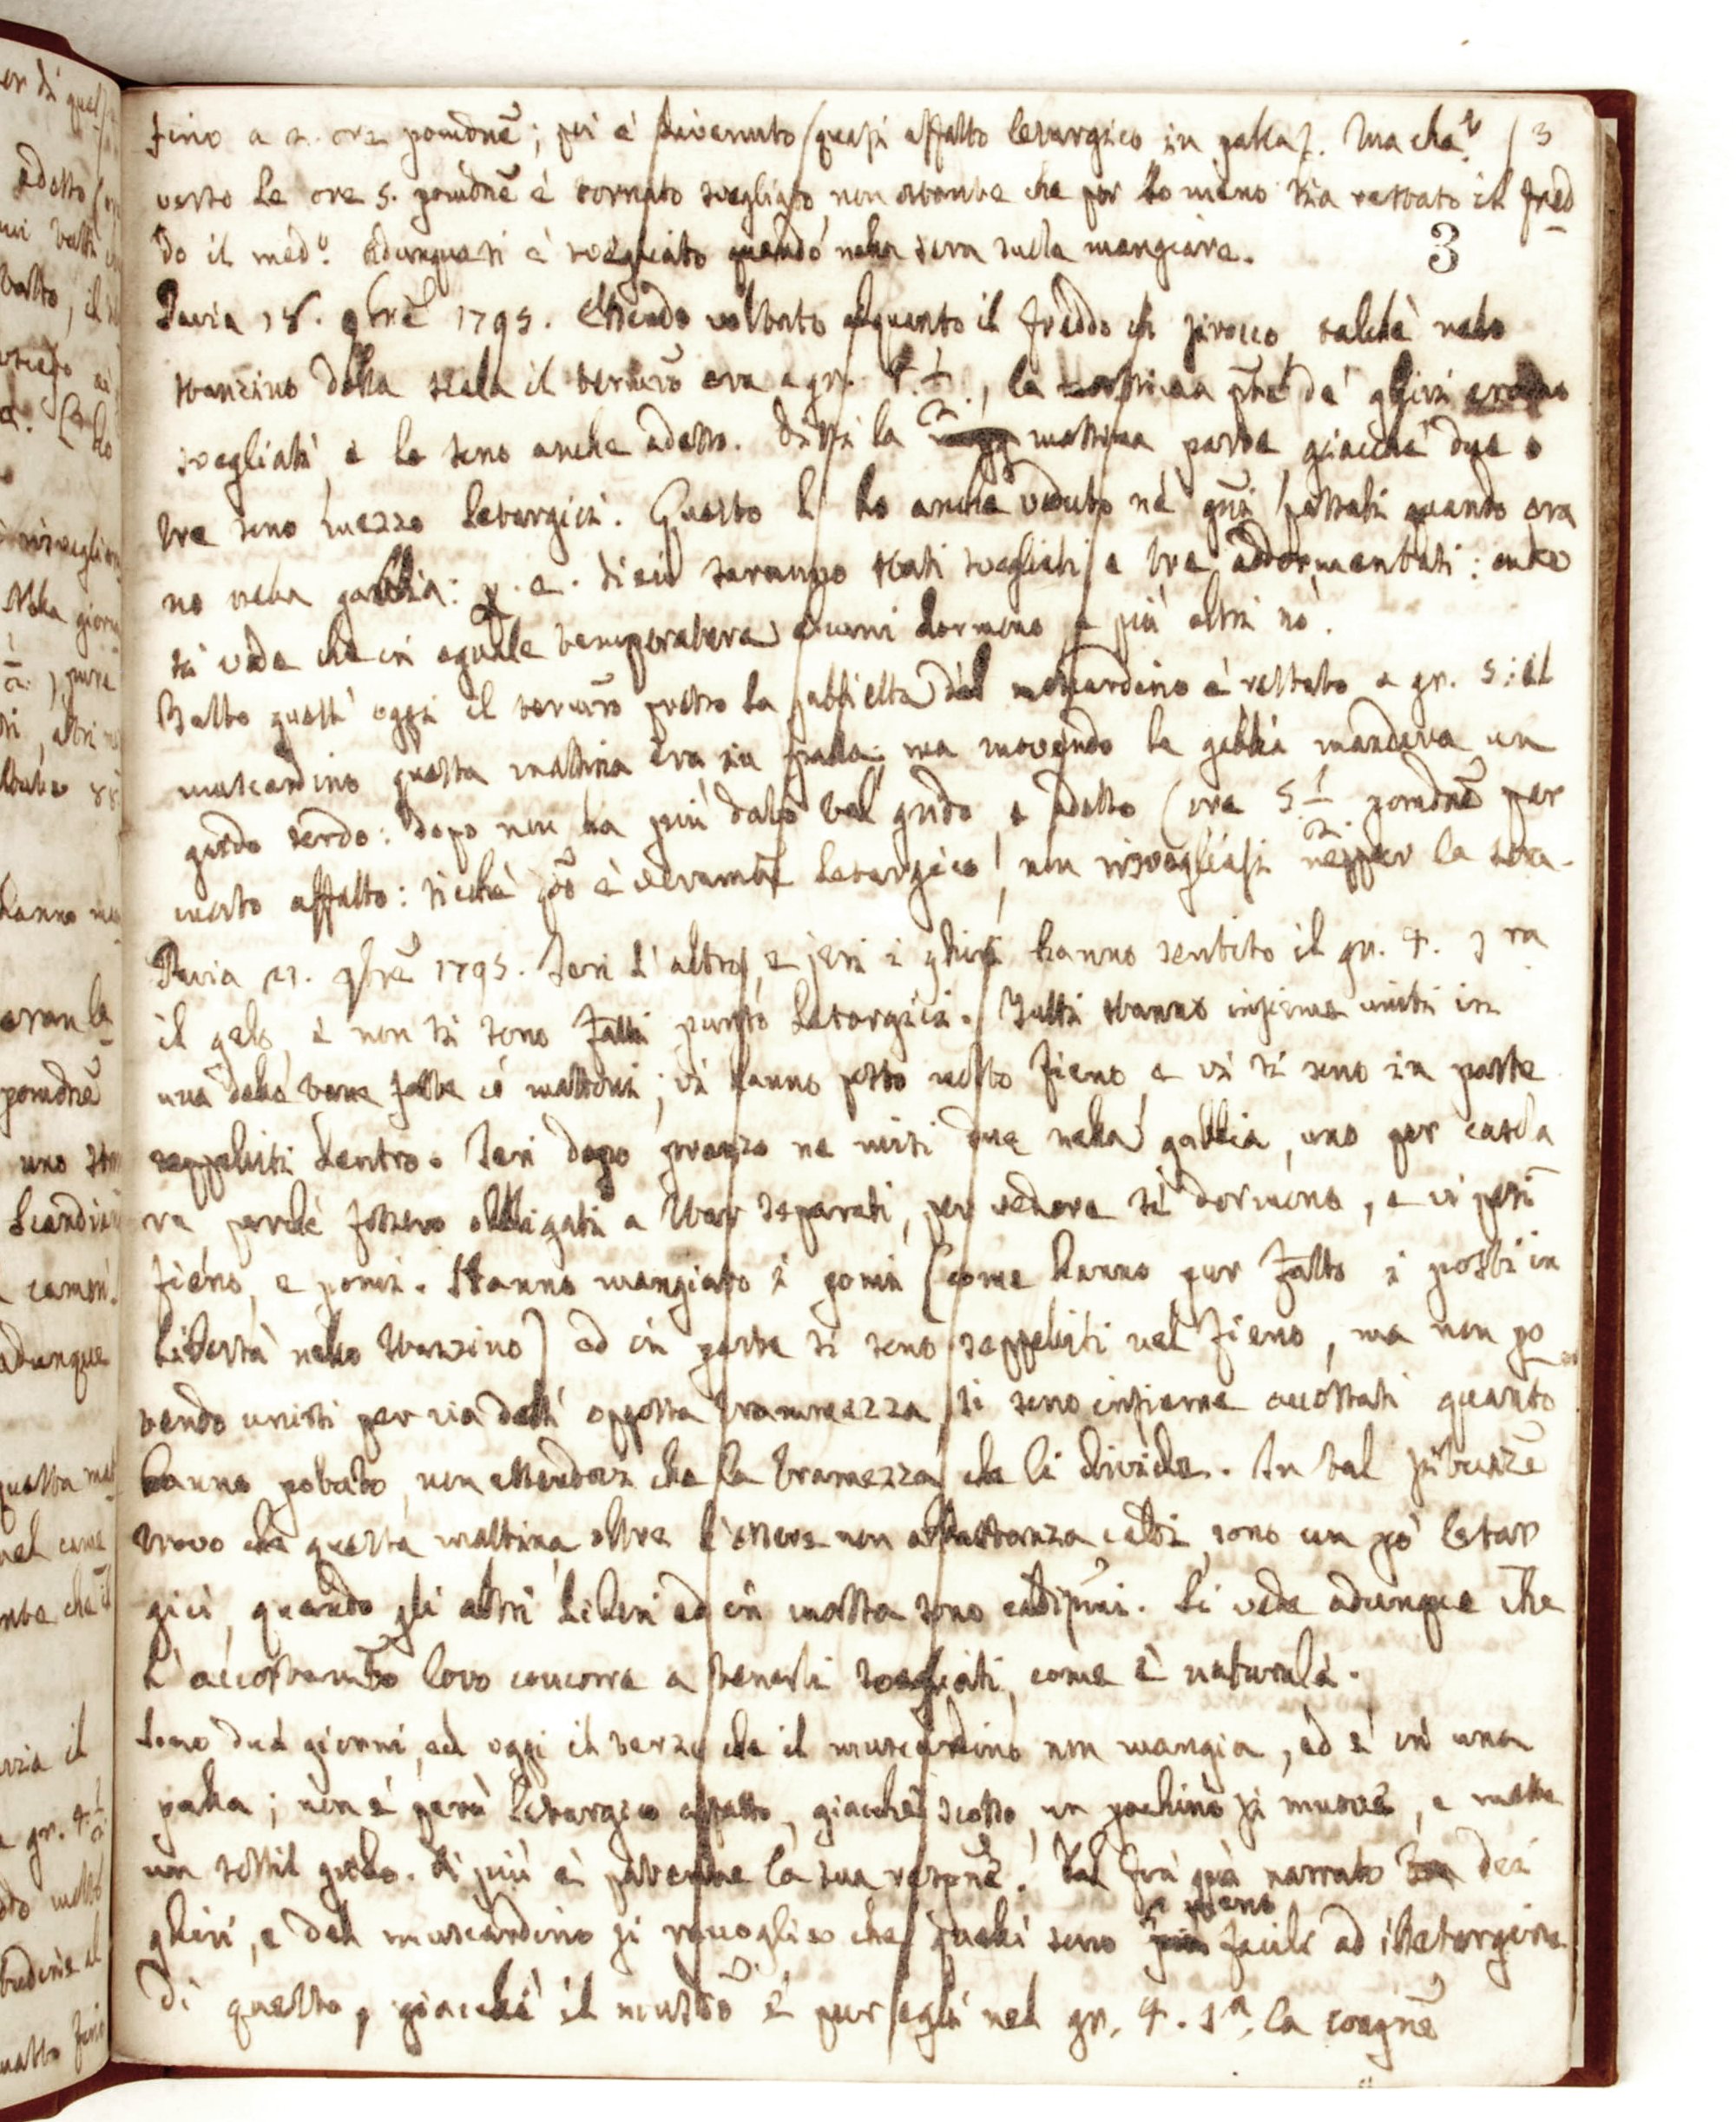 fino a 2. ore pomdne; poi è divenuto quasi affatto letargico in palla. Ma che? 3
verso le ore 5. pomdne è tornato svegliato, non ostante che per lo meno sia restato il fred
do il med.o Adunque si è svegliato quando nella sera suole mangiare. 3
Pavia 18. 9bre 1795. Essendo voltato alquanto il freddo in sirocco talchè nello
stanzino della scala il termro era a gr. 8. 1/2, la mattina pnte de' ghiri erano
svegliati, e lo sono anche adesso. Dissi la mattina parte, giacchè due o
tre sono mezzo letargici. Questo l' ho anche veduto ne' gni passati quando era
no nella gabbia: p. e. dieci saranno stati svegliati, e tre addormentati: onde
si vede che in eguale temperatura alcuni dormono, e più altri nò.
Tutto quest' oggi il termro presso la gabbietta del moscardino è restato a gr. 5: il
muscardino questa mattina era in palla; ma movendo la gabbia mandava un
grido sordo: dopo non ha più dato tal grido, e adesso (ore 5. 1/2 pomdne par
morto affatto: sicchè qdo è veramte letargico, non risvegliasi neppur la sera.
Pavia 21. 9bre 1795. Jeri l' altro, e jeri i ghiri hanno sentito il gr. 4. sra
il gelo, e non si sono fatti punto letargici. Tutti stanno insieme uniti in
una delle tane fatte co' mattoni; vi hanno posto molto fieno, e vi si sono in parte
seppelliti dentro. Jeri dopo pranzo ne misi due nella gabbia, uno per casella
ra perchè fossero obbligati a star separati, per vedere se dormono, e vi posi
fieno, e pomi. Hanno mangiato i pomi (come hanno pur fatto i posti in
libertà nello stanzino) ed in parte si sono seppelliti nel fieno, ma non po
tendo unirsi per via dell' opposta trammezza, si sono insieme accostati quanto
hanno potuto, non essendovi che la tramezza che li divide. In tal situazne
trovo che questa mattina, oltre l' essere non abbastanza caldi, sono un po' letar
gici, quando gli altri liberi ed in massa sono caldi più. Si vede adunque che
l' accostamto loro concorre a tenerli svegliati, come è naturale.
Sono due giorni, ed oggi il terzo che il muscardino non mangia, ed è in una
palla; non è però letargico affatto, giacchè scosso un pochino si muove, e mette
un sottil grido. Di più è patente la sua respne. Dal fin quà narrato dei
ghiri, e del muscardino si raccoglie che quelli sono meno facili ad illetargirsi
di questo, giacchè il musdno è pur egli nel gr. 4. sra. la congne